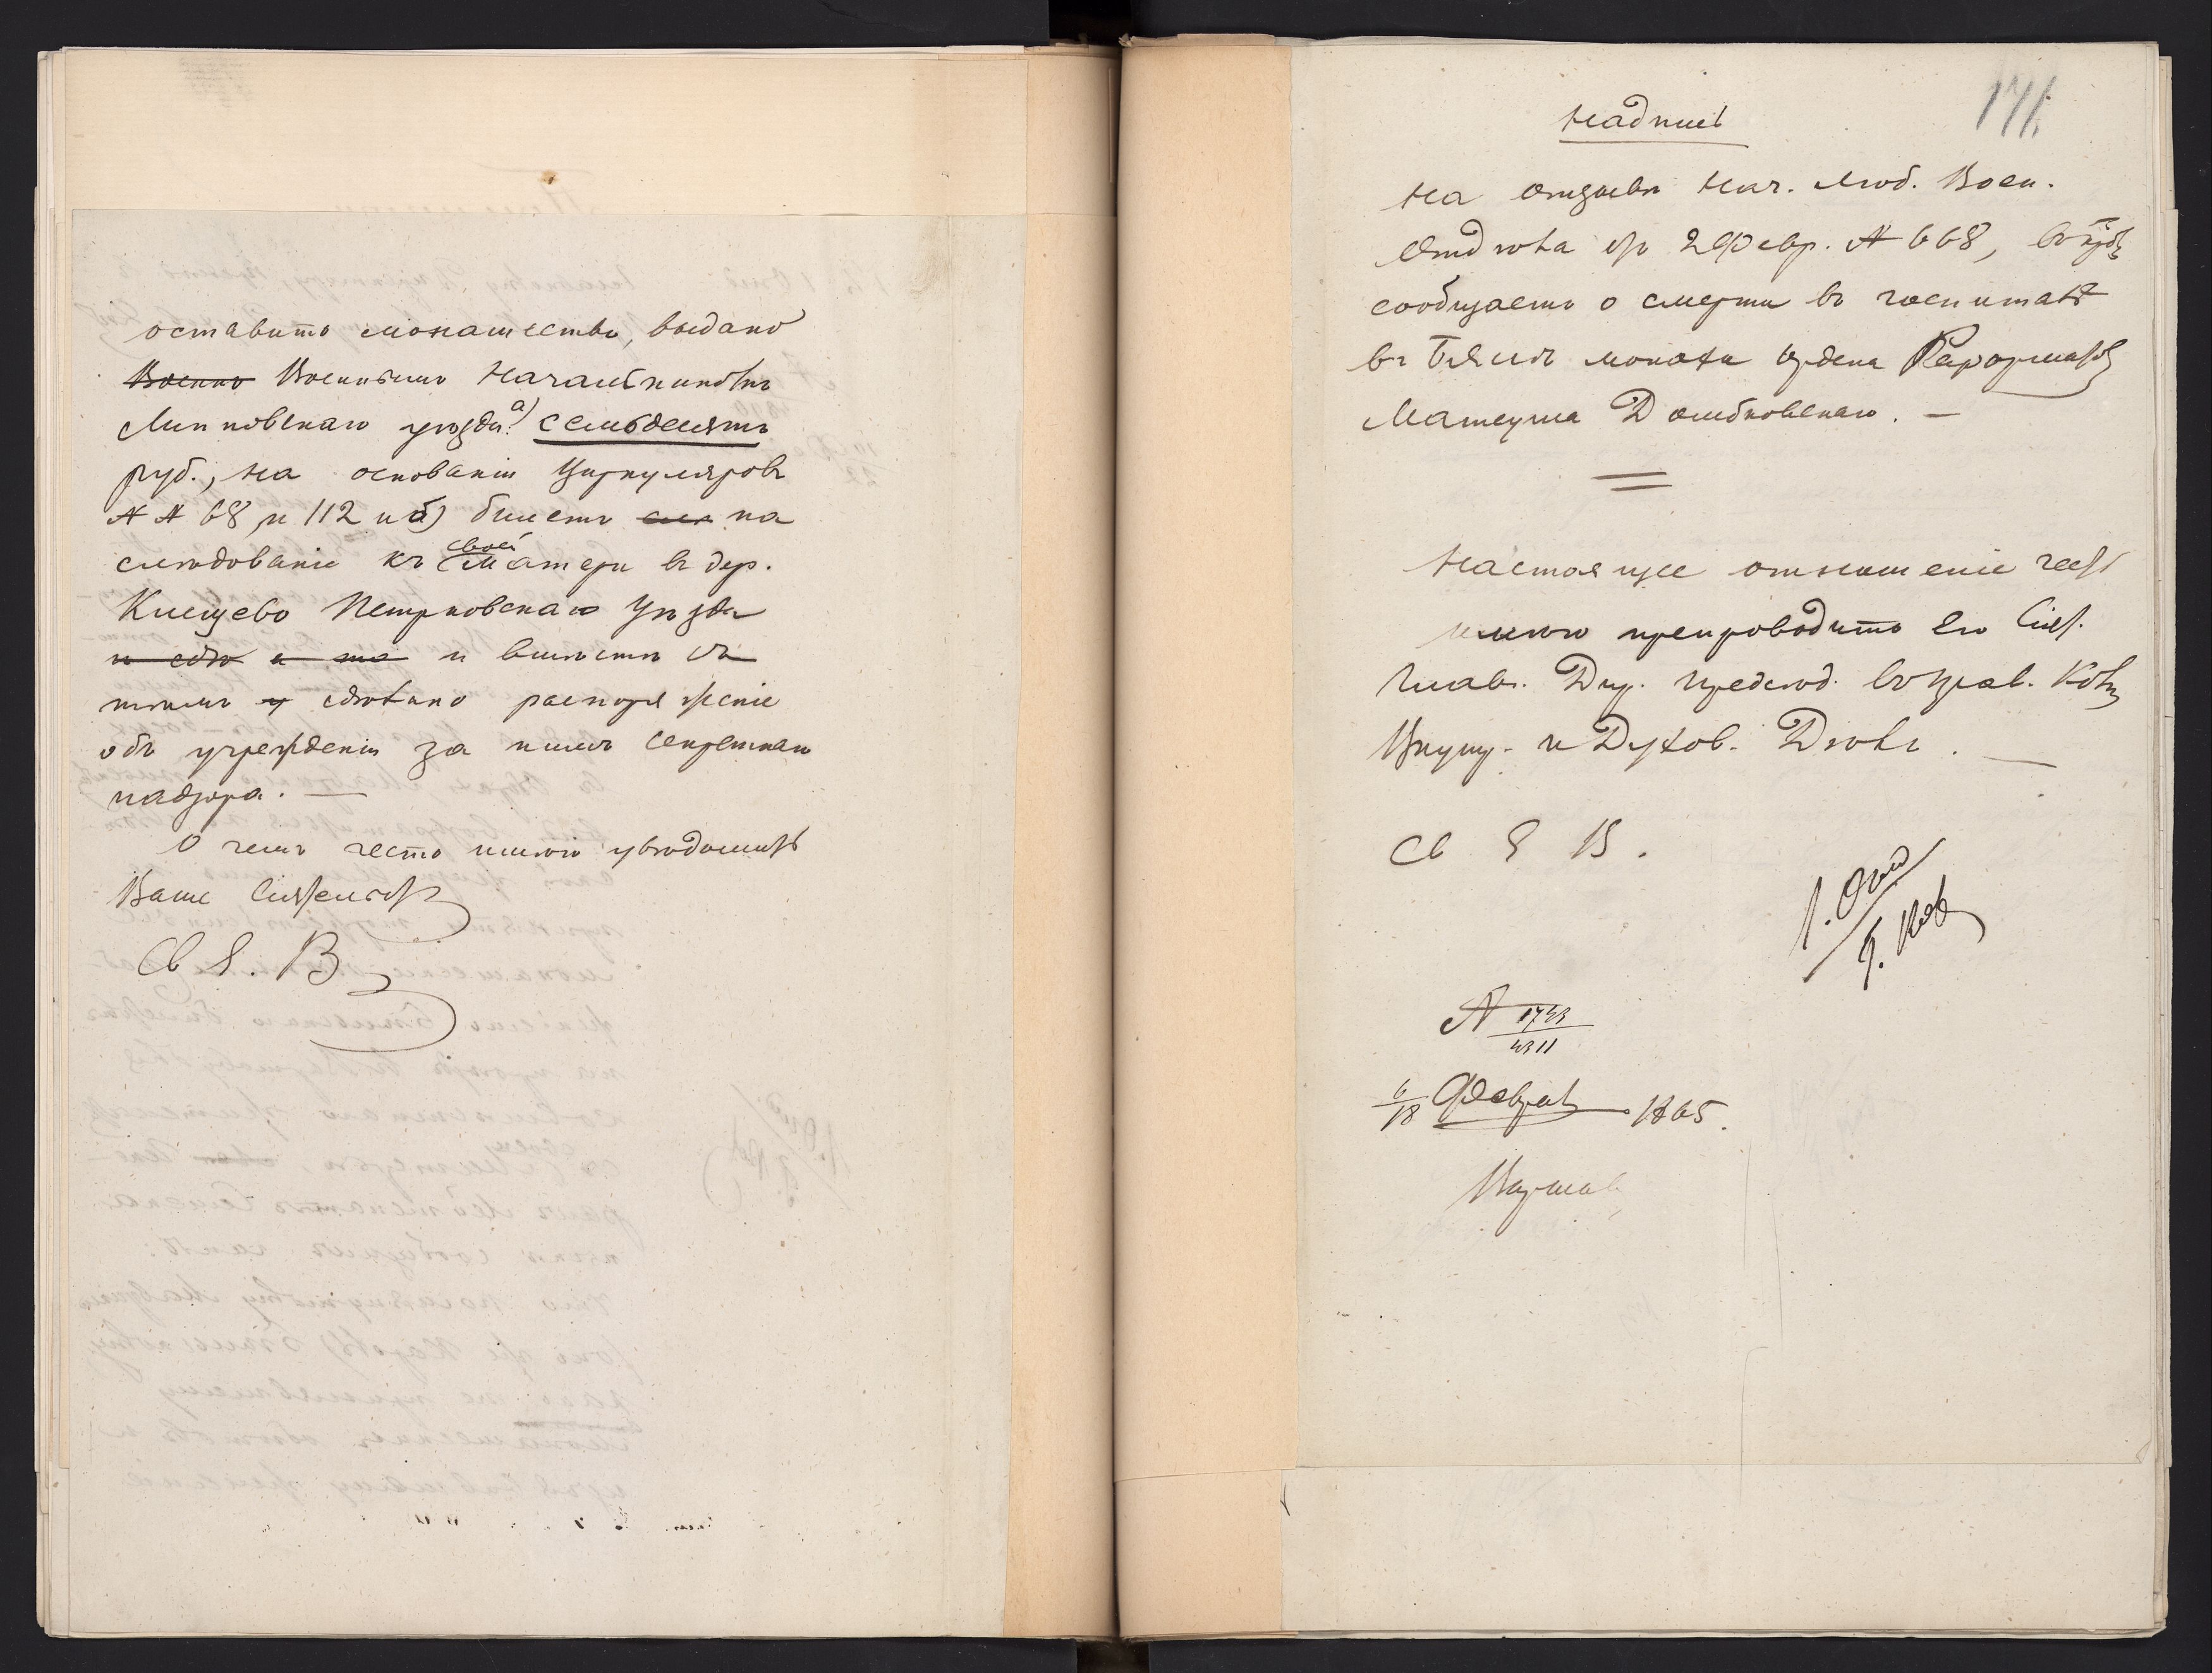 оставить монашество, выдано
Военно Военнымъ Начальникомъ
Липновскаго уѣзда: а) семьдесятъ
руб., на основаніи Циркуляровъ
№ № 68 и 112 и б) билетъ на
слѣдованіе къ своей Матери въ дер.
Кмецево Петрковскаго Уѣзда
и вмѣстѣ съ
тѣмъ сдѣлано распоряженіе
объ учрежденіи за нимъ секретнаго
надзора. —
О чемъ честь имѣю увѣдомить
Ваше Сіятельство
Св Е. В
171.
Надпись
На отзывѣ Нач. Люб. Воен.
Отдѣла отъ 2 Февр. № 668, въ коемъ
сообщаетъ о смерти въ госпиталѣ
въ Бялѣ монаха Ордена Реформатовъ
Матеуша Домбковскаго. —
Настоящее отношеніе честь
имѣю препроводить Его Сіят.
Глав. Дир. Предсѣд. въ Прав. Ком.
Внутр. и Духов. Дѣлъ. —
Св Е В.
1. Отд
9. Ков
№ 1743
4311
6/18 Феврал 1865.
Варшав